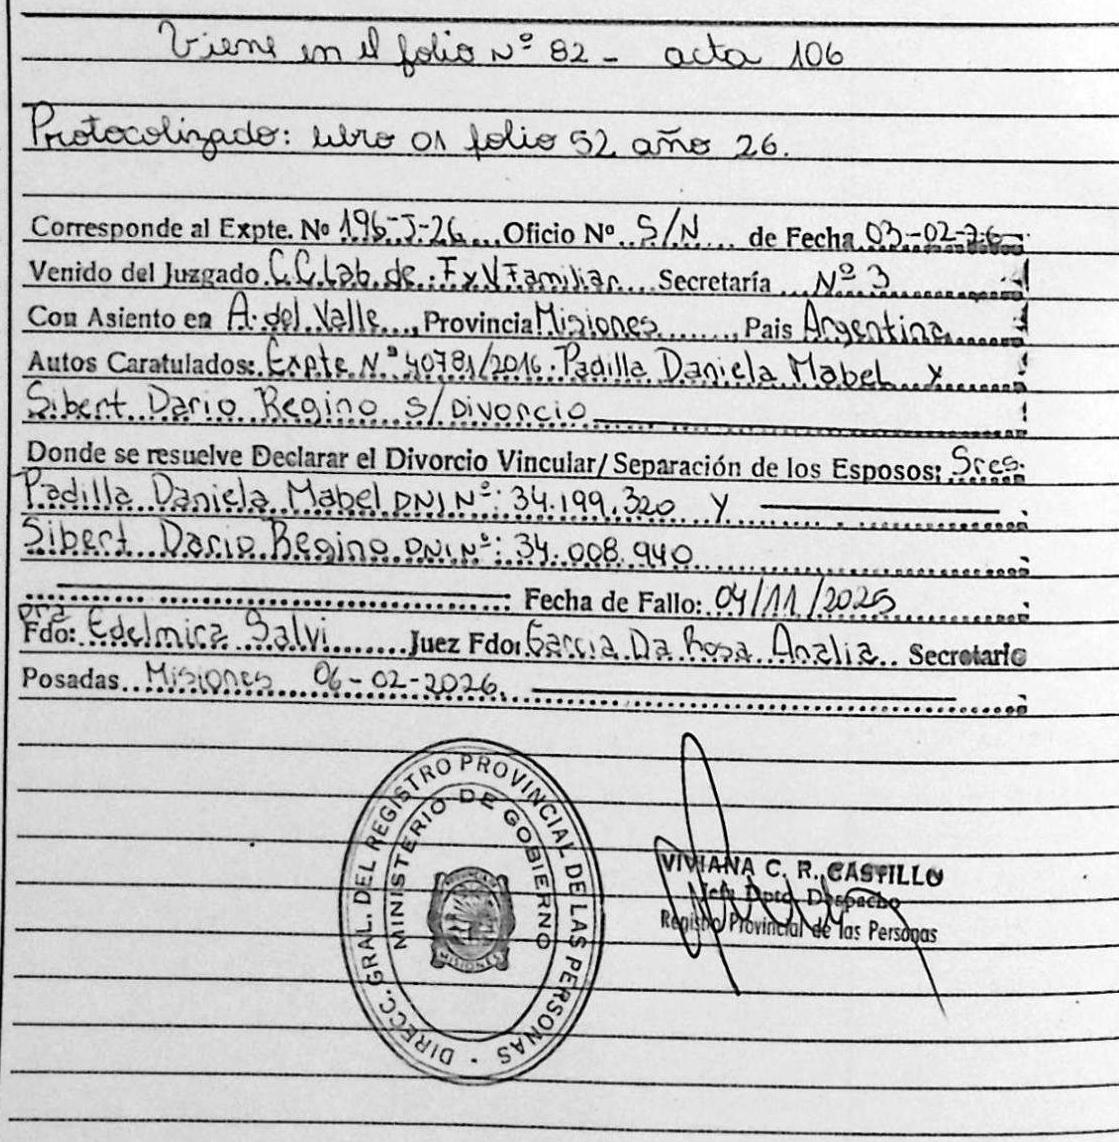 Viene en el folio Nº 82 - acta 106
Protocolizado: libro 01 folio 52 año 26.
Corresponde al Expte. Nº 196-J-26 Oficio Nº S/N de Fecha 03-02-26
Venido del Juzgado C.C.Lab. de Fx V Familiar Secretaría Nº 3
Con Asiento en A. del Valle, Provincia Misiones, Pais Argentina
Autos Caratulados: Expte Nº 40781/2016. Padilla Daniela Mabel x
Sibert Dario Regino S/Divorcio
Donde se resuelve Declarar el Divorcio Vincular/Separación de los Esposos: Sres.
Padilla Daniela Mabel DNI Nº: 34.199.320 Y
Sibert Dario Regino DNI Nº: 34.008.940
Fecha de Fallo: 04/11/2025
Dra
Fdo: Edelmira Salvi Juez Fdo: Garcia Da Rosa Analia Secretario
Posadas Misiones 06-02-2026
DIRECC. GRAL. DEL REGISTRO PROVINCIAL DE LAS PERSONAS
MINISTERIO DE GOBIERNO
MISIONES
VIVIANA C. R. CASTILLO
Jefa Dpto. Despacho
Registro Provincial de las Personas